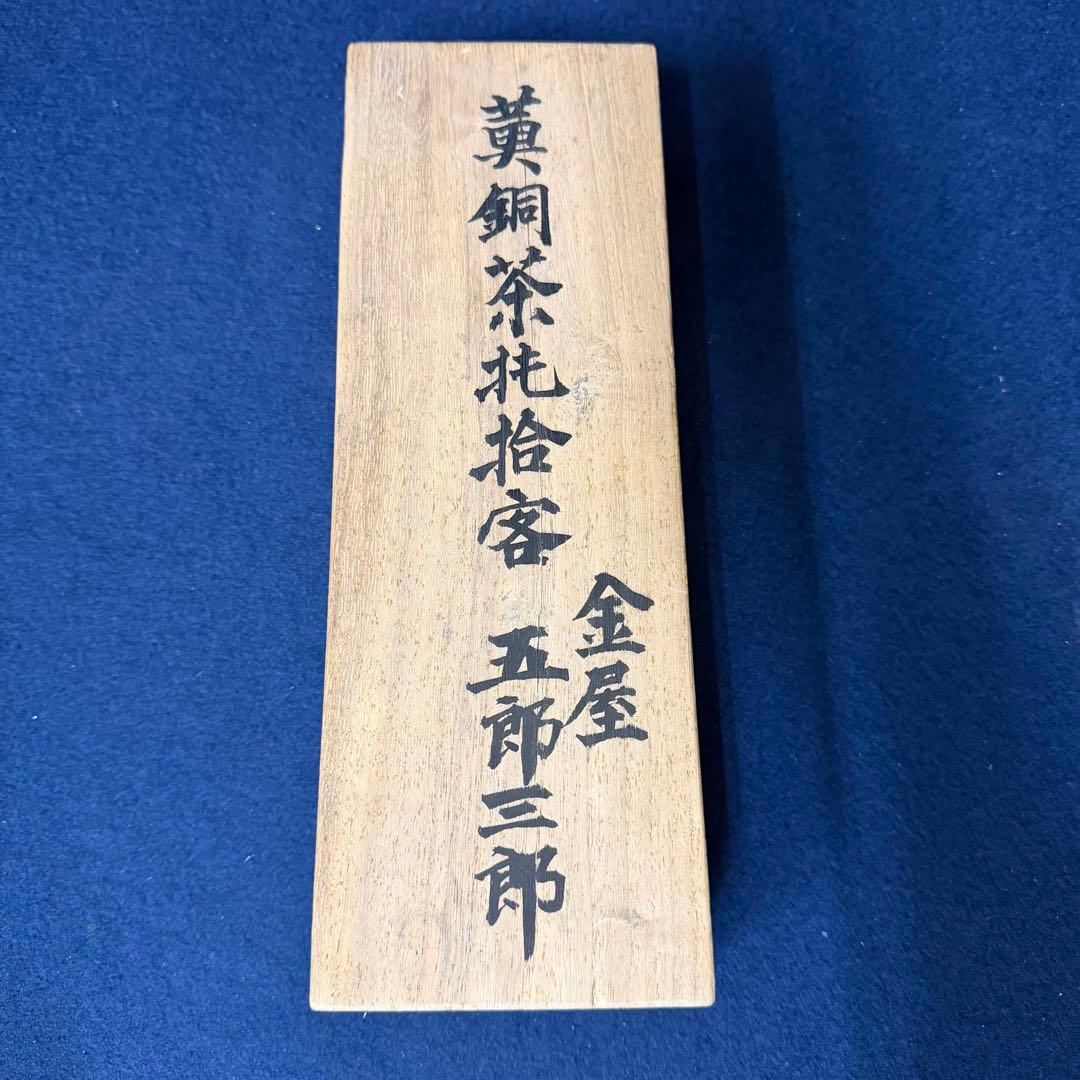 黄銅茶托拾客
金屋
五郎三郎